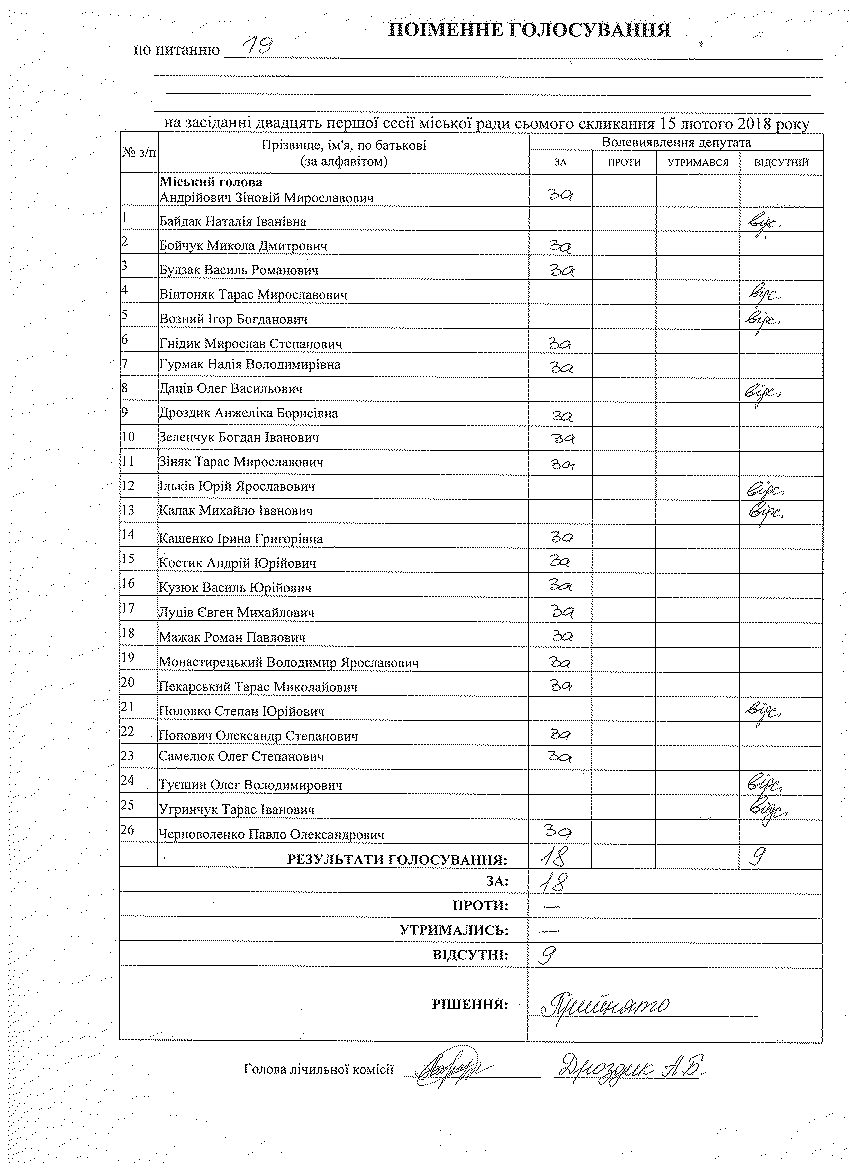 ПОІМЕННЕ ГОЛОСУВАННЯ
по питанню 19
на засіданні двадцять першої сесії міської ради сьомого скликання 15 лютого 2018 року
№ з/п Прізвище, ім'я, по батькові (за алфавітом) Волевиявлення депутата
ЗА ПРОТИ УТРИМАВСЯ ВІДСУТНІЙ
Міський голова
Андрійович Зіновій Мирославович за
1 Байдак Наталія Іванівна відс.
2 Бойчук Микола Дмитрович за
3 Будзак Василь Романович за
4 Вінтоняк Тарас Мирославович відс.
5 Возний Ігор Богданович відс.
6 Гнідик Мирослав Степанович за
7 Гурмак Надія Володимирівна за
8 Даців Олег Васильович відс.
9 Дроздик Анжеліка Борисівна за
10 Зеленчук Богдан Іванович за
11 Зіняк Тарас Мирославович за
12 Ільків Юрій Ярославович відс.
13 Капак Михайло Іванович відс.
14 Кашенко Ірина Григорівна за
15 Костик Андрій Юрійович за
16 Кузюк Василь Юрійович за
17 Луців Євген Михайлович за
18 Мажак Роман Павлович за
19 Монастирецький Володимир Ярославович за
20 Пекарський Тарас Миколайович за
21 Половко Степан Юрійович відс.
22 Попович Олександр Степанович за
23 Самелюк Олег Степанович за
24 Туєшин Олег Володимирович відс.
25 Угринчук Тарас Іванович відс.
26 Черноволенко Павло Олександрович за
РЕЗУЛЬТАТИ ГОЛОСУВАННЯ: 18 9
ЗА: 18
ПРОТИ: —
УТРИМАЛИСЬ: —
ВІДСУТНІ: 9
РІШЕННЯ: Прийнято
Голова лічильної комісії Дроздик А.Б.